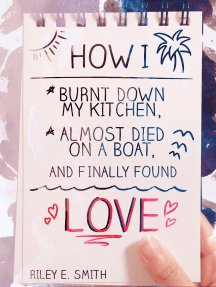 HOW I
* BURNT DOWN
MY KITCHEN,
* ALMOST DIED
ON A BOAT,
AND FINALLY FOUND
LOVE
RILEY E. SMITH